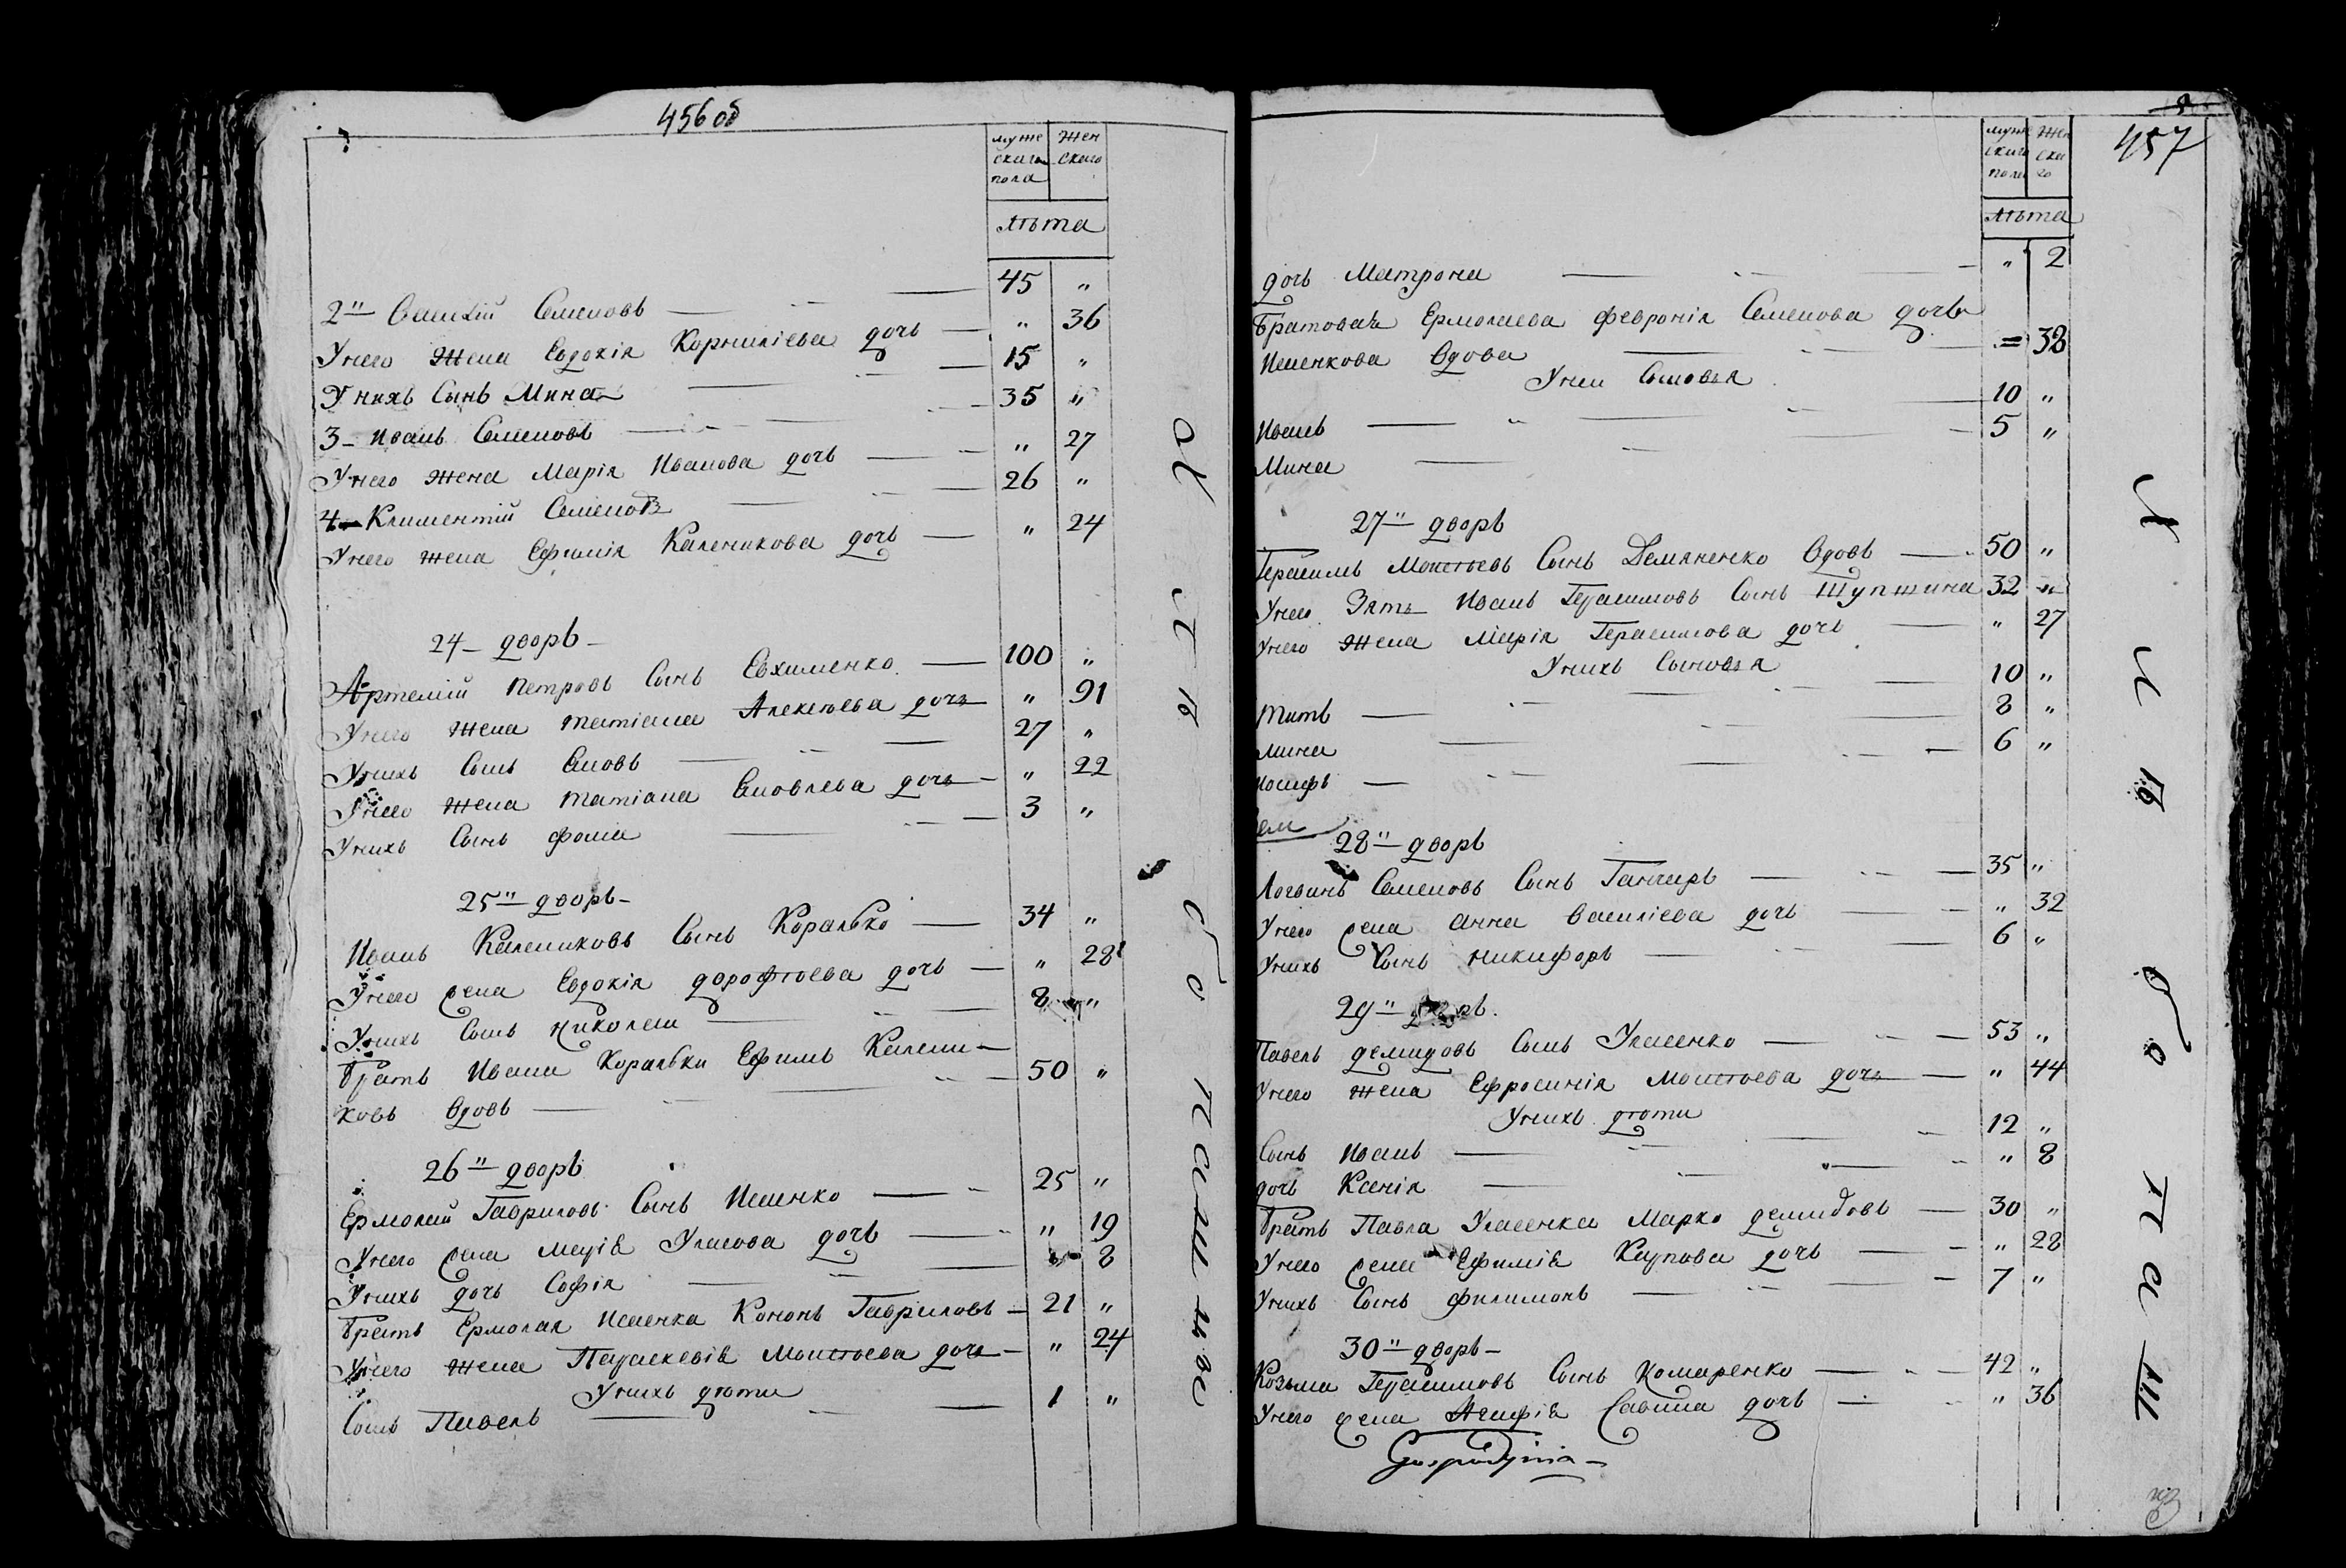 456 об
муже
скаго
пола
Жен
скаго
лѣта
2" Василій Семеновъ 45 "
Унего Жена Евдокія Корниліева дочь " 36
Унихъ Сынъ Мина 15 "
3 Иванъ Семеновъ 35 "
Унего Жена Марія Иванова дочь " 27
4 Климентій Семеновъ 26 "
Унего жена Ефимія Каленикова дочь " 24
24 дворъ
Артемій Петровъ Сынъ Евхименко 100 "
Унего жена татіана Алексѣева дочь " 91
Унихъ Сынъ Яковъ 27 "
Унего жена татіана Яковлева дочь " 22
Унихъ Сынъ фома 3 "
25" дворъ
Иванъ Калениковъ Сынъ Коралько 34 "
Унего жена Евдокія дорофѣева дочь " 28
Унихъ Сынъ николай 8 "
Братъ Ивана Коральки Ефимъ Калени-
ковъ Вдовъ 50 "
26" дворъ
Ермолай Гавриловъ Сынъ Исаенко 25 "
Унего жена Марія Уласова дочь " 19
Унихъ дочь Софія " 8
Братъ Ермолая Исаенка Кононъ Гавриловъ 21 "
Унего жена Параскевія Моисѣева дочь " 24
Унихъ дѣти
Сынъ Павелъ 1 "
457
муже
скаго
пола
Жен
ска
го
лѣта
дочь Матрона " 2
Братовая Ермолаева февронія Семенова дочь
Исаенкова Вдова = 38
Унеи Сыновья
Иванъ 10 "
Мина 5 "
27" дворъ
Герасимъ Моисѣевъ Сынъ Демяненко Вдовъ 50 "
Унего Зять Иванъ Герасимовъ Сынъ 32 "
Унего Жена Марія Герасимова дочь " 27
Унихъ Сыновья
Титъ 10 "
мина 8 "
иосифъ 6 "
28" дворъ
Логвинъ Семеновъ Сынъ Ганчаръ 35 "
Унего жена анна Василіева дочь " 32
Унихъ Сынъ никифоръ 6 "
29" дворъ
Павелъ демидовъ Сынъ Уласенко 53 "
Унего жена Ефросинія Моисѣева дочь " 44
Унихъ дѣти
Сынъ Иванъ 12 "
дочь Ксенія " 8
Братъ Павла Уласенка Марко демидовъ 30 "
Унего жена Ефимія Карпова дочь " 28
Унихъ Сынъ филимонъ 7 "
30" дворъ
Козьма Герасимовъ Сынъ Комаренко 42 "
Унего жена Агафія Савина дочь " 36